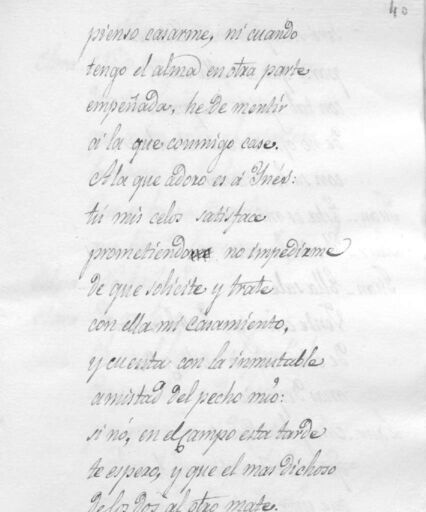 40
pienso casarme, ni cuando
tengo el alma en otra parte
empeñada, he de mentir
á la que conmigo case.
A la que adoro es á Ynés:
tú mis celos satisface
prometiendo no impedirme
de que solicite y trate
con ella mi casamiento,
y cuenta con la inmutable
amistad del pecho mio:
si nó, en el campo esta tarde
te espero, y que el mas dichoso
de los dos al otro mate.